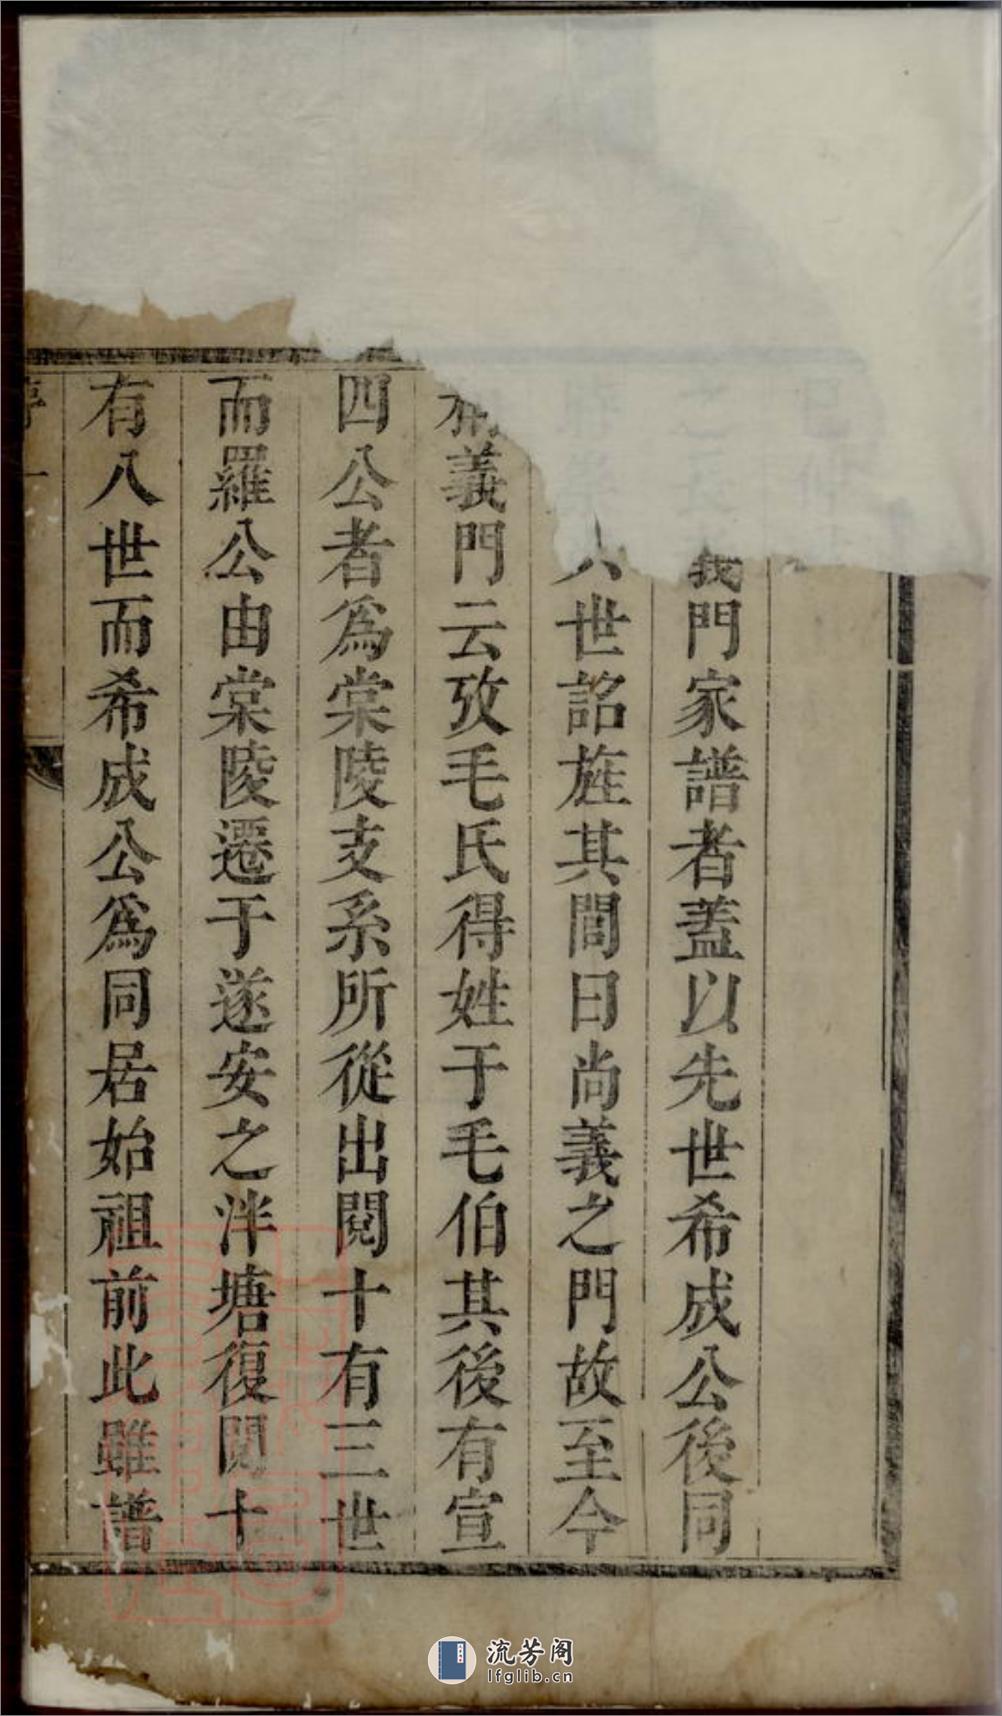 義門家譜者蓋以先世希成公後同
世詔旌其閭曰尚義之門故至今
稱義門云攷毛氏得姓于毛伯其後有宣
四公者為棠陵支系所從出閱十有三世
而羅公由棠陵遷于遂安之泮塘復閱十
有八世而希成公為同居始祖前此雖譜
流芳阁
lfglib.cn